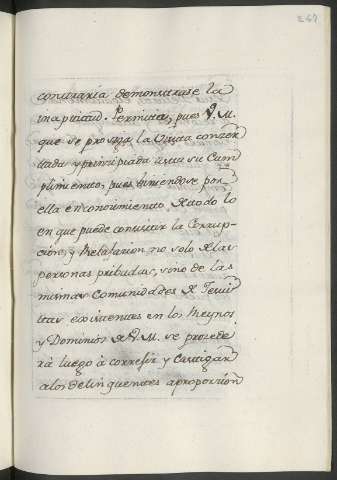 267
contraria demonstrase la
inaptitud. Permita, pues V. M.
que se prosiga la Visita conzer
tada y principiada asta su Cum
plimiento, pues biniendose por
ella en conocimiento de todo lo
en que puede consistir la Corrup-
cion, y Relajacion no solo de las
personas pribadas, sino de las
mismas Comunidades de Jesui
tas existentes en los Reynos
y Dominios de V. M. se procede
rà luego à corregir y Castigar
a los delinquentes a proporcion